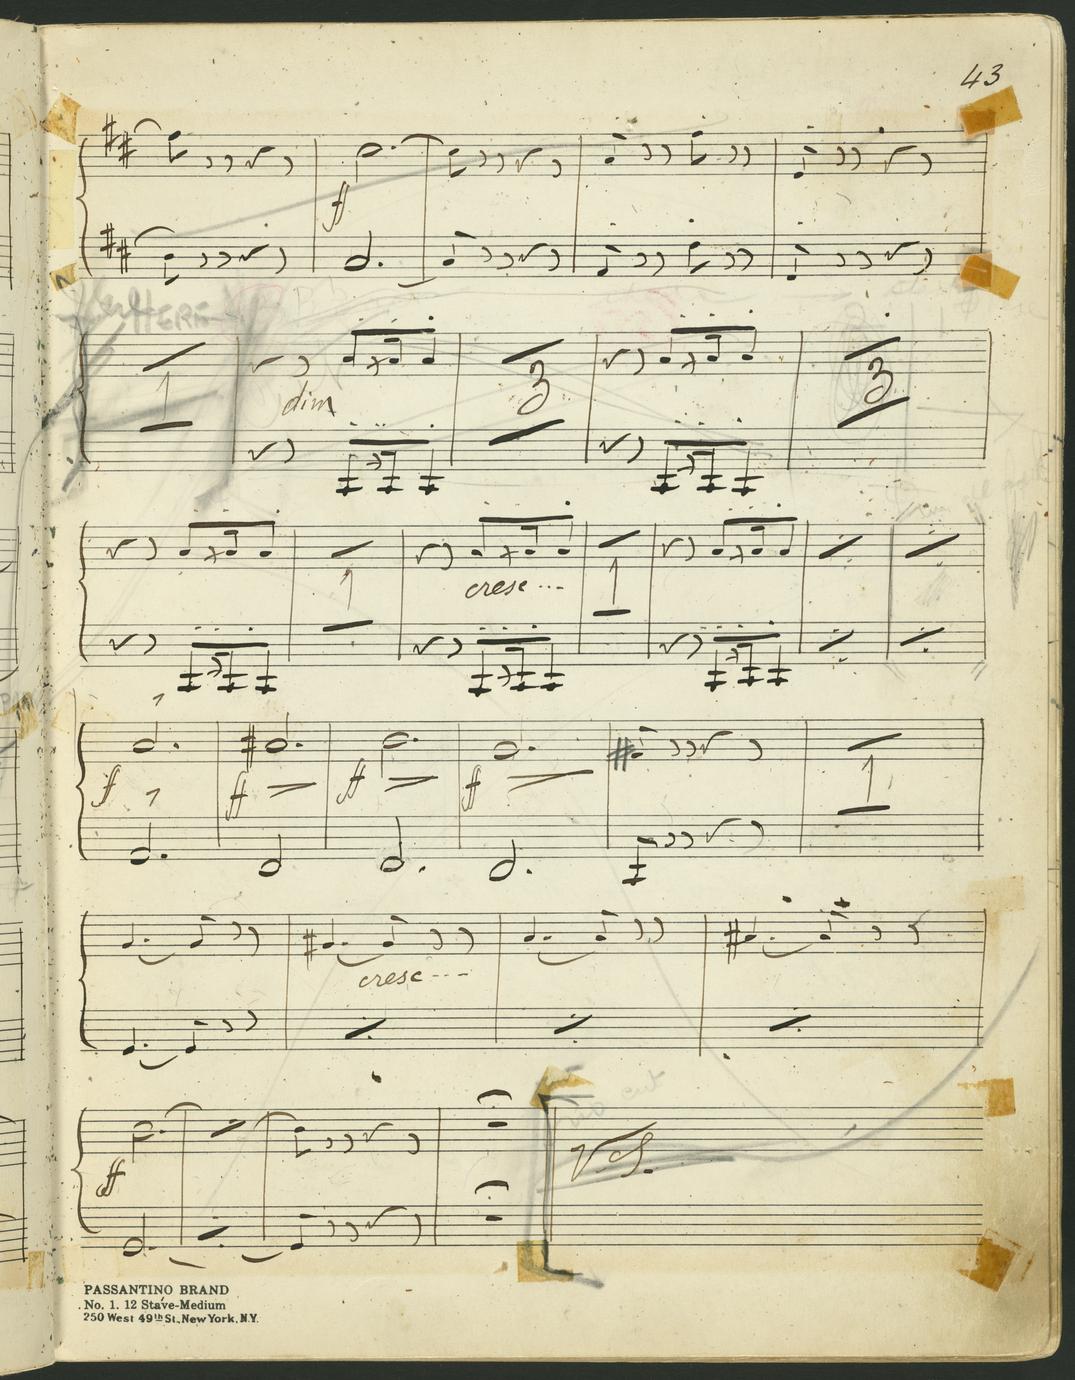 43
f
HERE
1
dim
3
3
1
cresc ---
1
f f f f
1
cresc ---
f
cut
V.S.
PASSANTINO BRAND
No. 1. 12 Stave-Medium
250 West 49th St., New York, N.Y.